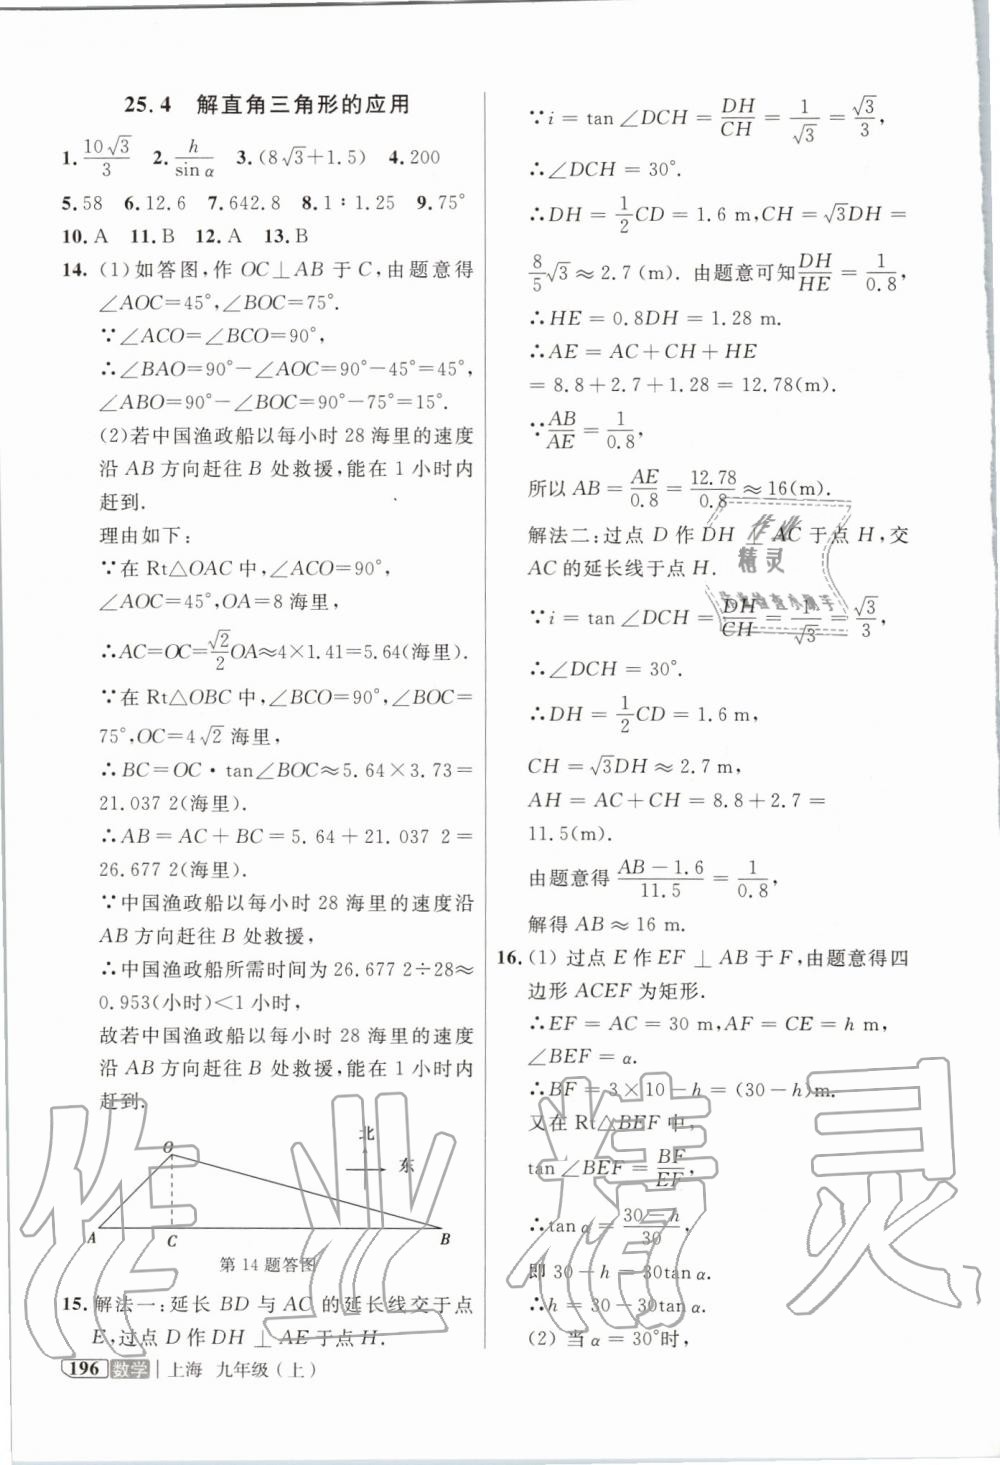 25.4 解直角三角形的应用
1. 10√3/3 2. h/sin α 3.(8√3+1.5) 4.200
5.58 6.12.6 7.642.8 8.1∶1.25 9.75°
10.A 11.B 12.A 13.B
14.(1)如答图,作 OC⊥AB 于 C,由题意得
∠AOC=45°,∠BOC=75°.
∵∠ACO=∠BCO=90°,
∴∠BAO=90°-∠AOC=90°-45°=45°,
∠ABO=90°-∠BOC=90°-75°=15°.
(2)若中国渔政船以每小时 28 海里的速度
沿 AB 方向赶往 B 处救援,能在 1 小时内
赶到.
理由如下:
∵在 Rt△OAC 中,∠ACO=90°,
∠AOC=45°,OA=8 海里,
∴AC=OC=√2/2 OA≈4×1.41=5.64(海里).
∵在 Rt△OBC 中,∠BCO=90°,∠BOC=
75°,OC=4√2 海里,
∴BC=OC·tan∠BOC≈5.64×3.73=
21.037 2(海里).
∴AB=AC+BC=5.64+21.037 2=
26.677 2(海里).
∵中国渔政船以每小时 28 海里的速度沿
AB 方向赶往 B 处救援,
∴中国渔政船所需时间为 26.677 2÷28≈
0.953(小时)<1 小时,
故若中国渔政船以每小时 28 海里的速度
沿 AB 方向赶往 B 处救援,能在 1 小时内
赶到.
O
北
东
A C B
第 14 题答图
15.解法一:延长 BD 与 AC 的延长线交于点
E,过点 D 作 DH⊥AE 于点 H.
196 数学 上海 九年级(上)
∵i=tan∠DCH=DH/CH=1/√3=√3/3,
∴∠DCH=30°.
∴DH=1/2 CD=1.6 m,CH=√3DH=
8/5√3≈2.7(m).由题意可知 DH/HE=1/0.8,
∴HE=0.8DH=1.28 m.
∴AE=AC+CH+HE
=8.8+2.7+1.28=12.78(m).
∵AB/AE=1/0.8,
所以 AB=AE/0.8=12.78/0.8≈16(m).
解法二:过点 D 作 DH⊥AC 于点 H,交
AC 的延长线于点 H.
∵i=tan∠DCH=DH/CH=1/√3=√3/3,
∴∠DCH=30°.
∴DH=1/2 CD=1.6 m,
CH=√3DH≈2.7 m,
AH=AC+CH=8.8+2.7=
11.5(m).
由题意得 AB-1.6/11.5=1/0.8,
解得 AB≈16 m.
16.(1)过点 E 作 EF⊥AB 于 F,由题意得四
边形 ACEF 为矩形.
∴EF=AC=30 m,AF=CE=h m,
∠BEF=α.
∴BF=3×10-h=(30-h)m.
又在 Rt△BEF 中,
tan∠BEF=BF/EF,
∴tan α=30-h/30,
即 30-h=30tan α.
∴h=30-30tan α.
(2)当 α=30°时,
作业
精灵
作业精灵